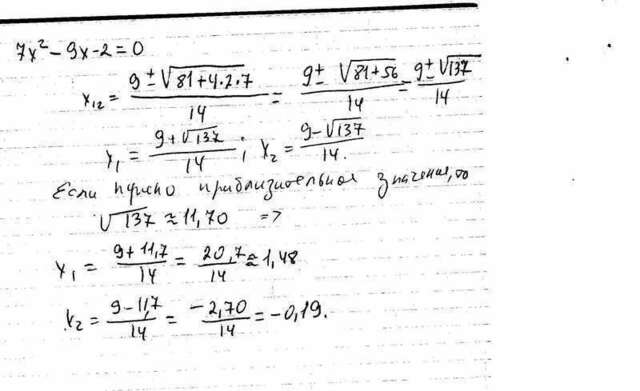 7x² - 9x - 2 = 0
x₁₂ = (9 ± √(81+4·2·7))/14 = (9 ± √(81+56))/14 = (9 ± √137)/14
x₁ = (9+√137)/14 ; x₂ = (9-√137)/14.
Если нужно приблизительное значение, то
√137 ≈ 11,70 =>
x₁ = (9+11,7)/14 = 20,7/14 ≈ 1,48
x₂ = (9-11,7)/14 = -2,70/14 = -0,19.